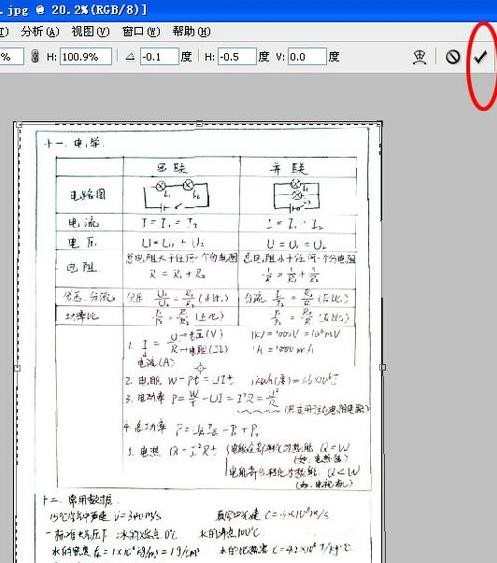 .jpg @ 20.2%(RGB/8)]
T) 分析(A) 视图(V) 窗口(W) 帮助(H)
% H: 100.9% -0.1 度 H: -0.5 度 V: 0.0 度
十一、电学
串联 并联
电路图 L₁ L₂
电流 I=I₁=I₂ I=I₁ I₂
电压 U=U₁+U₂ U=U₁=U₂
电阻 总电阻大于任何一个分电阻 总电阻小于任何一个分电阻
R=R₁+R₂ 1/R=1/R₁+1/R₂
分压、分流 分压 U₁/U₂=R₁/R₂ (正比) 分流 (反比)
功率比 (正比) (反比)
1. I=U→电压(V)/R→电阻(Ω) 1KV=1000V=10⁶mV
电流(A)
2. 电能 W=Pt=UIt 1kwh(度)=3.6×10⁶J
3. 电功率 P=W/t=UI=I²R=U²/R
(只适用于纯电阻电路)
4. 总功率 P=P₁+P₂
5. 电热 Q=I²Rt (电能全部转化为热能 Q=W
(如:电热器)
电能部分转化为热能 Q<W
(如:电视机)
十二、常用数据
15℃空气中声速 V=340m/s 真空中光速 C=3×10⁸m/s
一标准大气压下:冰的熔点0℃ 水的沸点100℃
水的密度 =1×10³kg/m³=1g/cm³ 水的比热容 C=4.2×10³J/kg·℃